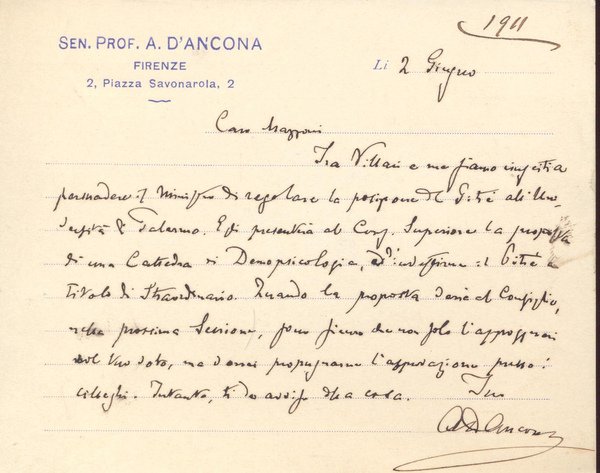 1911
SEN. PROF. A. D'ANCONA
FIRENZE
2, Piazza Savonarola, 2
Li 2 Giugno
Caro Mazzoni
Tra Villari e me siamo riusciti a
persuadere il Ministro di regolare la posizione del Pitrè all'Uni-
versità di Palermo. Egli presenterà al Cons. Superiore la proposta
di una Cattedra di Demopsicologia, ed il Pitrè a
titolo di Straordinario. Quando la proposta verrà al Consiglio,
nella prossima Sessione, sono sicuro che non solo l'appoggerai
col tuo voto, ma vorrai propugnarne l'approvazione presso i
colleghi. Intanto, ti do avviso della cosa.
Tuo
A D'Ancona